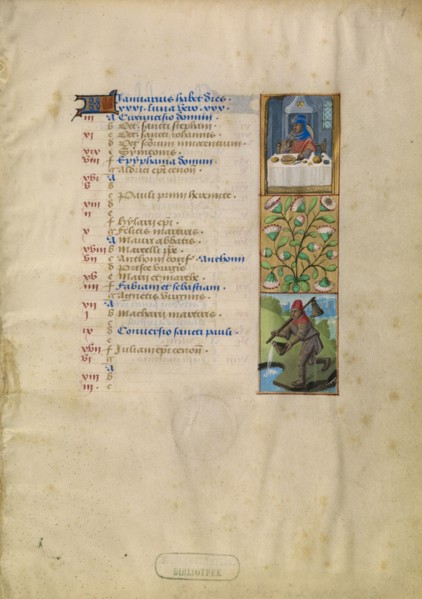 Januarius habet dies
xxxi. luna vero xxx.
iii A Circuncisio domini.
b Oct. sancti stephani.
xi c Oct. sancti iohannis.
d Oct. sctorum innocentium.
xix e Symeonis.
viii f Epyphania domini.
g
xvi A
v b
c Pauli primi heremite.
xiii d
ii e
f Hylarii epi.
x g Felicis martiris.
A Mauri abbatis.
xviii b Marcelli pape.
vii c Anthonii conf. Anthonii
d Prisce virginis
xv e Marii et marthe.
iiii f Fabiani et sebastiani.
g Agnetis virginis.
xii A
i b Macharii martiris.
c
ix d Conversio sancti pauli.
e
xvii f Iuliani epi cenom.
vi g
A
xiiii b
iii. c
BIBLIOTHEK